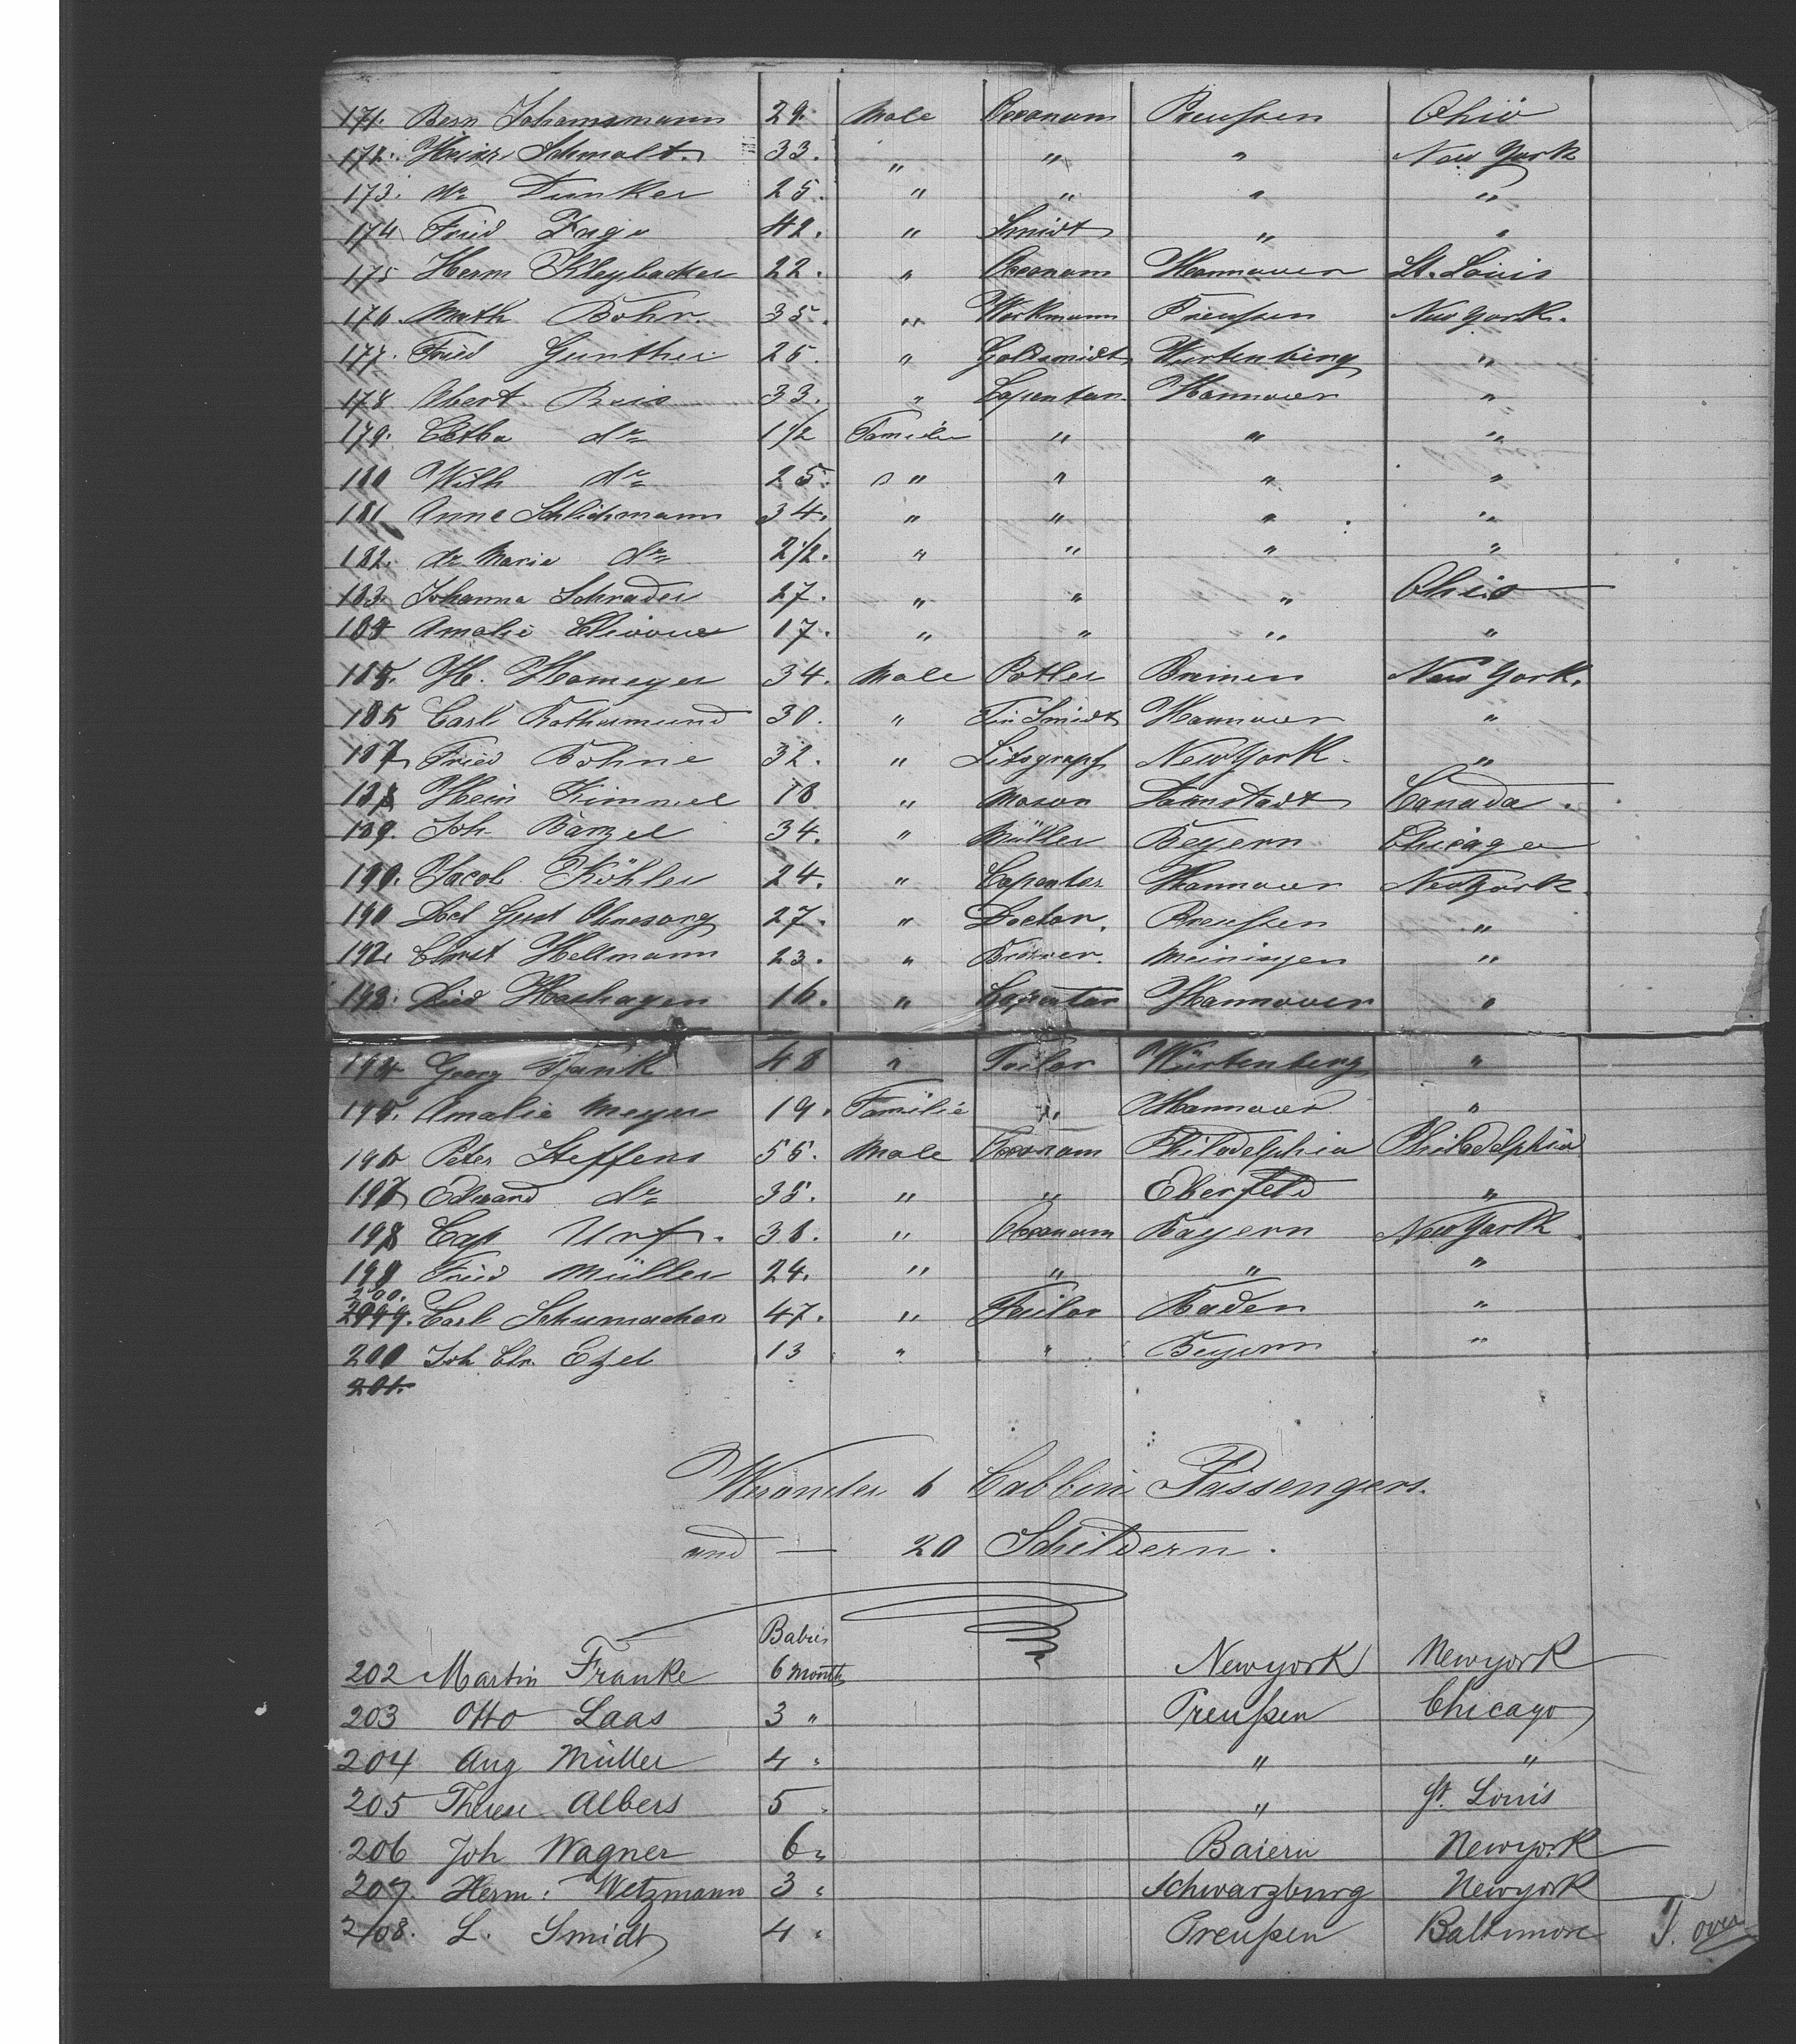 171. Bern Johannsmann 29. Male Oeconom Preußen Ohio
172. Heinr Schmalt. 33. " " " New York
173. do Dunker 25. " " " "
174 Fried 42. " Smidt " "
175 Herm Kleybacker 22. " Oeconom Hannover St. Louis
176 Math Bohr. 35. " Workmann Preußen New York.
177. Fried Gunther 25. " Goldsmidt Wurtenberg "
178 Albert Reis 33. " Capentar Hannover "
179. do 1 1/2 Famile " " "
180 Wilh do 25. " " " "
181 Anna Schlichmann 34. " " " "
182. do Maria do 2 1/2. " " " "
183. Johanna Schrader 27. " " " Ohio
184 Amalie 17. " " " "
185. H. Homeyer 34. Male Potler Bremen New York.
185 Carl Rothermund 30. " Tin Smidt Hannover "
187 Fried Bohne 32. " Litograpf New York. "
188 Hein Kimmel 18 " Mason Darmstadt Canada.
189. Joh Barzel 34. " Müller Beyern Chicago
190. Jacob Köhler 24. " Capentar Hannover New York
190 Doct Gust Ohnesorg 27. " Doctor. Preußen "
192. Christ Hellmann 23. " Brower. Meiningen "
193. Died Hashagen 16. " Capentar Hannover "
194 Georg Frank 48 " Tailor Würtenberg "
195. Amalie Meyer 19. Familie " Hannover "
196 Peter Steffens 55. Male Oeconom Philadelphia Philadelphia
197 Edward do 35. " " Elberfeld "
198 Casp Urf. 38. " Oeconom Bayern New York.
199 Fried Müller 24. " " " "
200.
2099. Carl Schumacher 47. " Tailor Baden "
200 Joh Chr. Etzel 13 " " Beyern "
201.
Worunter 6 Cabbin Passengers.
und — 20 Schildern.
Babies
202 Martin Franke 6 Month Newyork Newyork
203 Otto Laas 3 " Preußen Chicago
204 Aug Müller 4 " " "
205 Therese Albers 5 " " St. Louis
206 Joh Wagner 6 " Baiern Newyork
207. Herm: Wetzmann 3 " Schwarzburg Newyork
208. L. Smidt 4 " Preußen Baltimore T. over